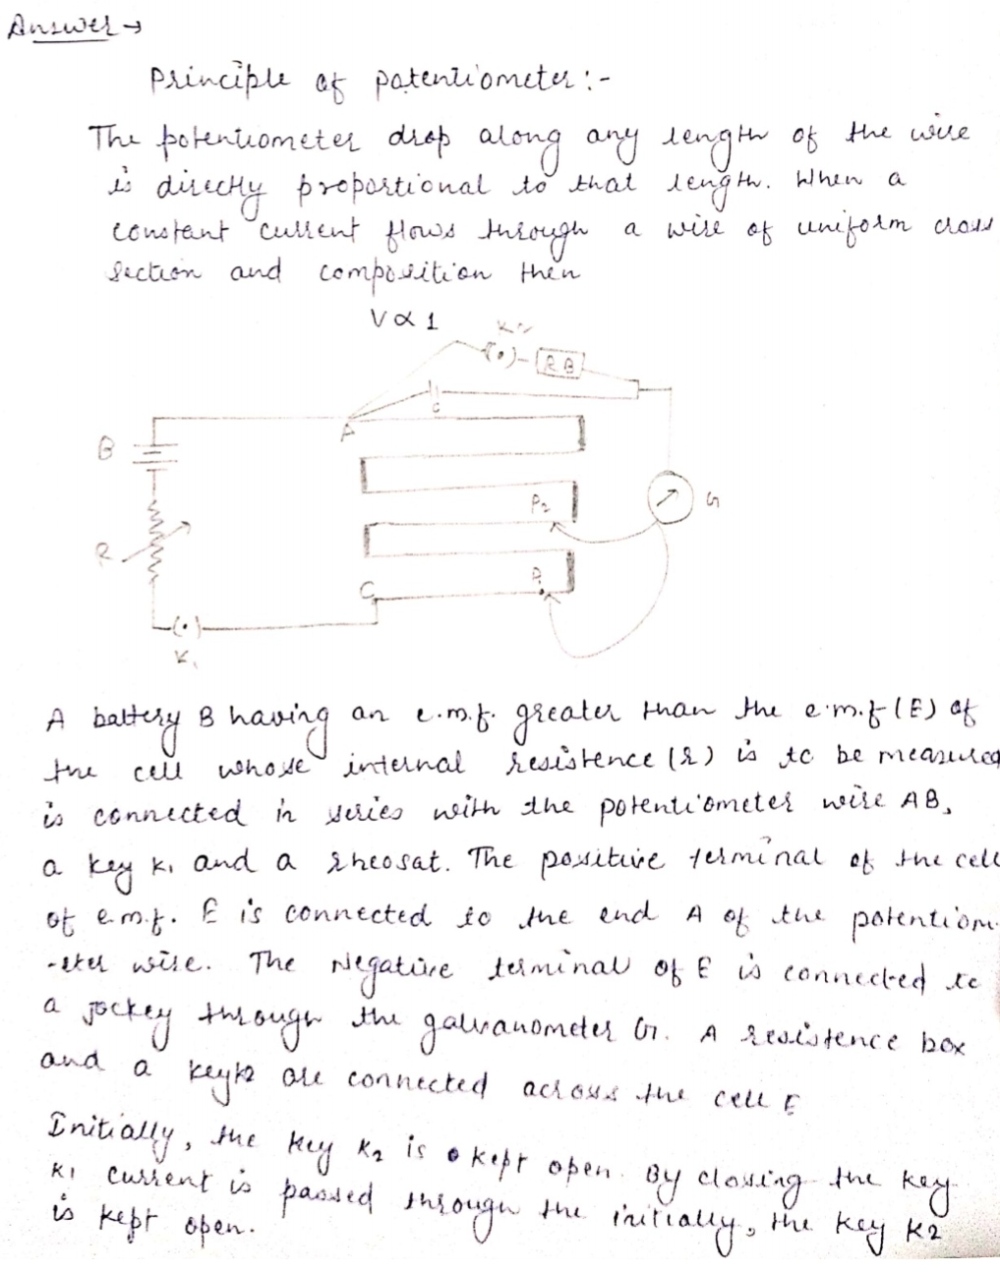 Answer →
Principle of potentiometer :-
The potentiometer drop along any length of the wire
is directly proportional to that length. When a
constant current flows through a wire of uniform cross
section and composition then
V ∝ 1
K2
(•) R B
A
B
P2
G
R
C
P1
(•)
K1
A battery B having an e.m.f. greater than the e.m.f (E) of
the cell whose internal resistence (r) is to be measured
is connected in series with the potentiometer wire AB,
a key K1 and a rheosat. The positive terminal of the cell
of e.m.f. E is connected to the end A of the potentiom-
-eter wire. The Negative terminal of E is connected to
a jockey through the galvanometer G. A resistence box
and a key k2 are connected across the cell E
Initially, the key K2 is kept open. By closing the key
K1 current is passed through the initially, the key K2
is kept open.